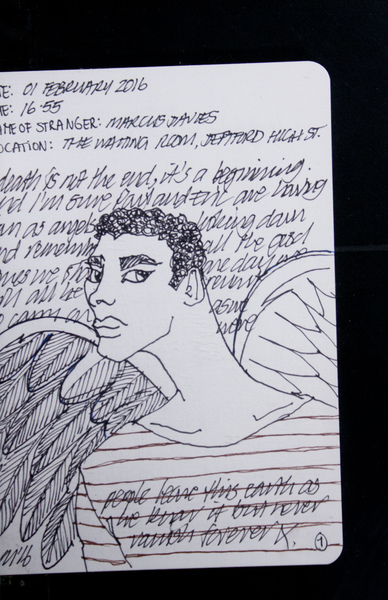 TE: 01 FEBRUARY 2016
ME: 16:55
AME OF STRANGER: MARCUS DAVIES
OCATION: THE WAITING ROOM, DEPTFORD HIGH ST.
death is not the end, it's a beginning
and I'm sure Paul and Eric are having
un as angels looking down
and remembe all the good
imes we sha one day we
all be
people leave this earth as
we know it but never
vanish forever X.
1